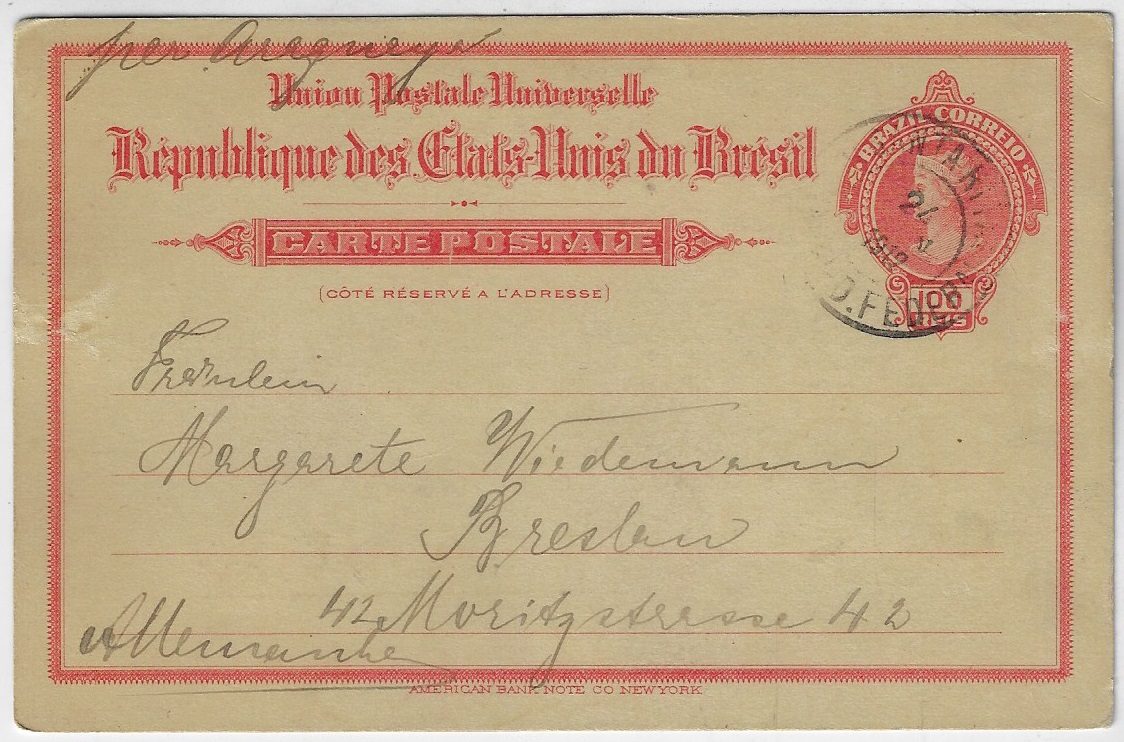 per Araguaya
Union Postale Universelle
République des Etats-Unis du Brésil
BRAZIL CORREIO
CARTE POSTALE
(CÔTÉ RÉSERVÉ A L'ADRESSE)
1912
D. FEDERAL
100
REIS
Fräulein
Margarete Wiedemann
Breslau
42 Moritzstrasse 42
Allemanha
AMERICAN BANK NOTE CO NEW YORK